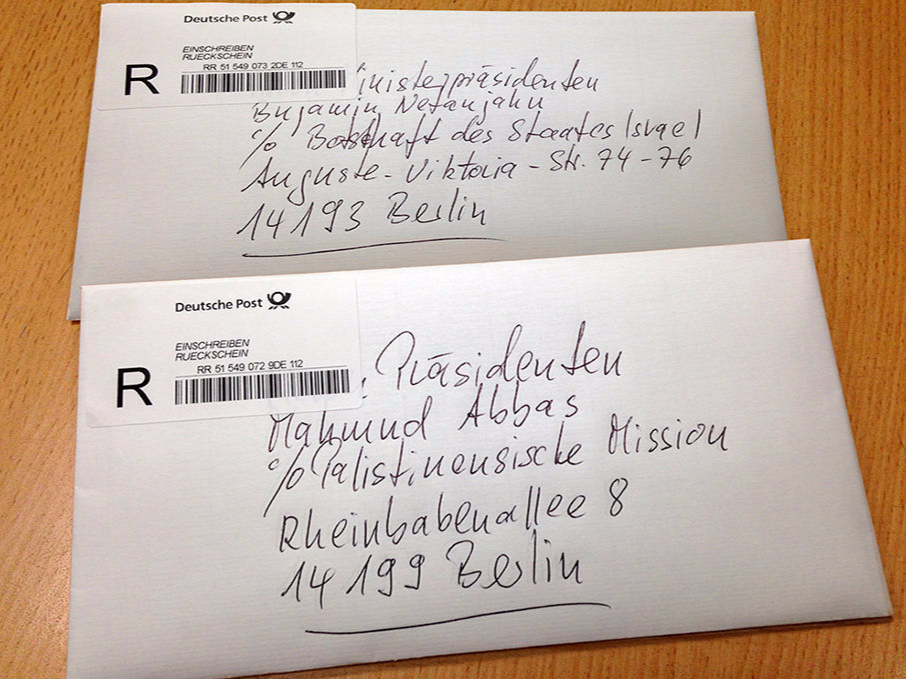 Deutsche Post
EINSCHREIBEN
RUECKSCHEIN
RR 51 549 073 2DE 112
R
inisterpräsidenten
Bnjamin Netanjahu
c/o Botschaft des Staates Israel
Auguste-Viktoria-Str. 74-76
14193 Berlin
Deutsche Post
EINSCHREIBEN
RUECKSCHEIN
RR 51 549 072 9DE 112
R
Präsidenten
Mahmud Abbas
c/o Palistinensische Mission
Rheinbabenallee 8
14199 Berlin